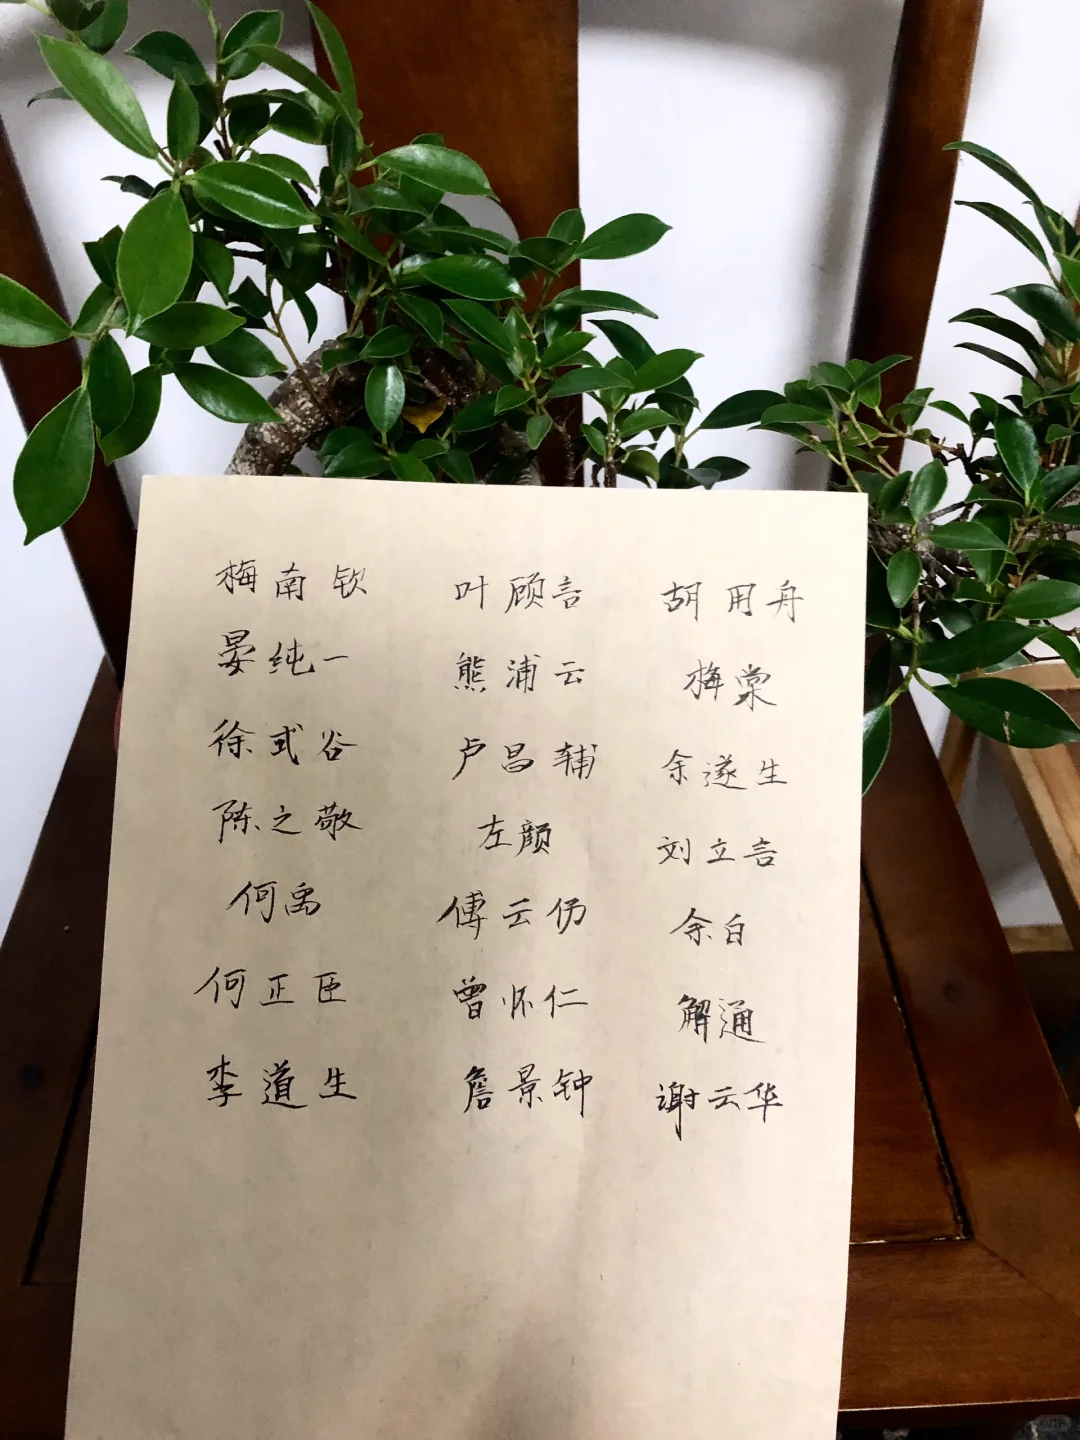 梅南钦 叶顾言 胡用舟
晏纯一 熊浦云 梅棠
徐式谷 卢昌辅 余遂生
陈之敬 左颜 刘立言
何禹 傅云伤 余白
何正臣 曾怀仁 解通
李道生 詹景钟 谢云华